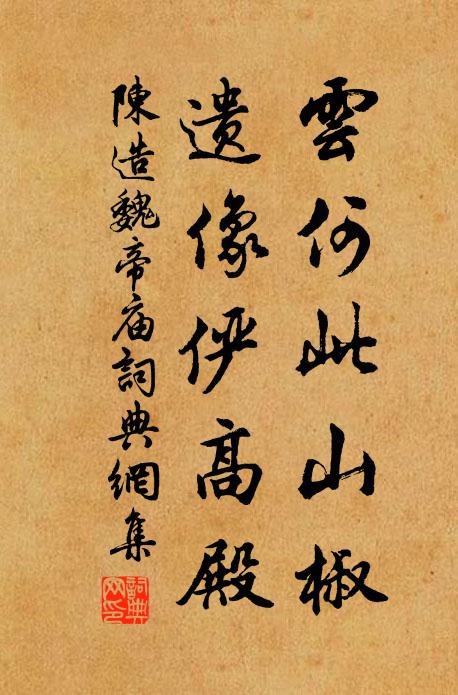 雲何此山椒
遺像俨高殿
陳造魏帝庙詞典網集
詞典网印